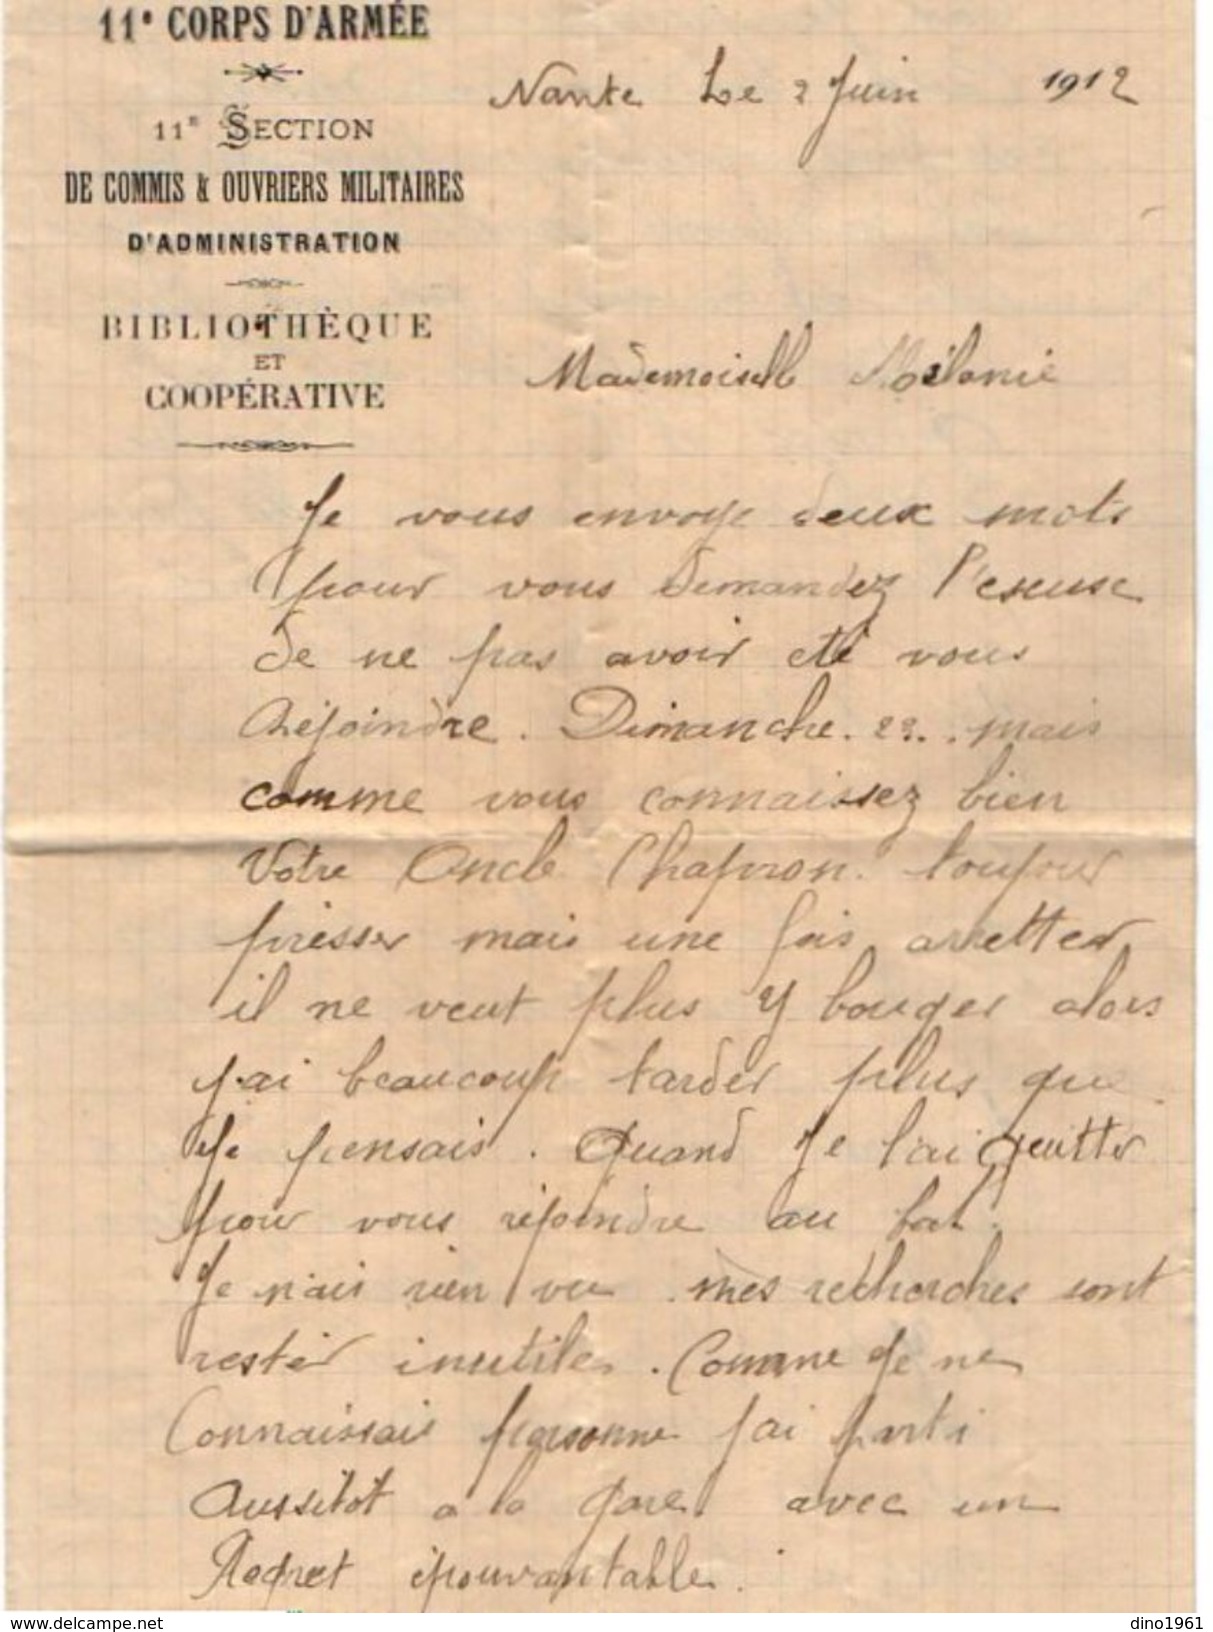 11e CORPS D'ARMÉE
11e SECTION
DE COMMIS & OUVRIERS MILITAIRES
D'ADMINISTRATION
BIBLIOTHÈQUE
ET
COOPÉRATIVE
Nante Le 2 Juin 1912
Mademoiselle Mélanie
Je vous envoye deux mots
pour vous demandez l'excuse
de ne pas avoir eté vous
réjoindre. Dimanche. mais
comme vous connaissez bien
Votre Oncle Chapron. toujour
presser mais une fois arretter
il ne veut plus y bouger alors
j'ai beaucoup tarder plus que
Je pensais. Quand Je l'ai quitter
pour vous réjoindre au bal.
Je n'ais rien vu. mes recherches sont
rester inutiles. Comme Je ne
Connaissais personne j'ai parti
Aussitot a la gare. avec un
Regret épouvantable.
delcampe.net
dino1961